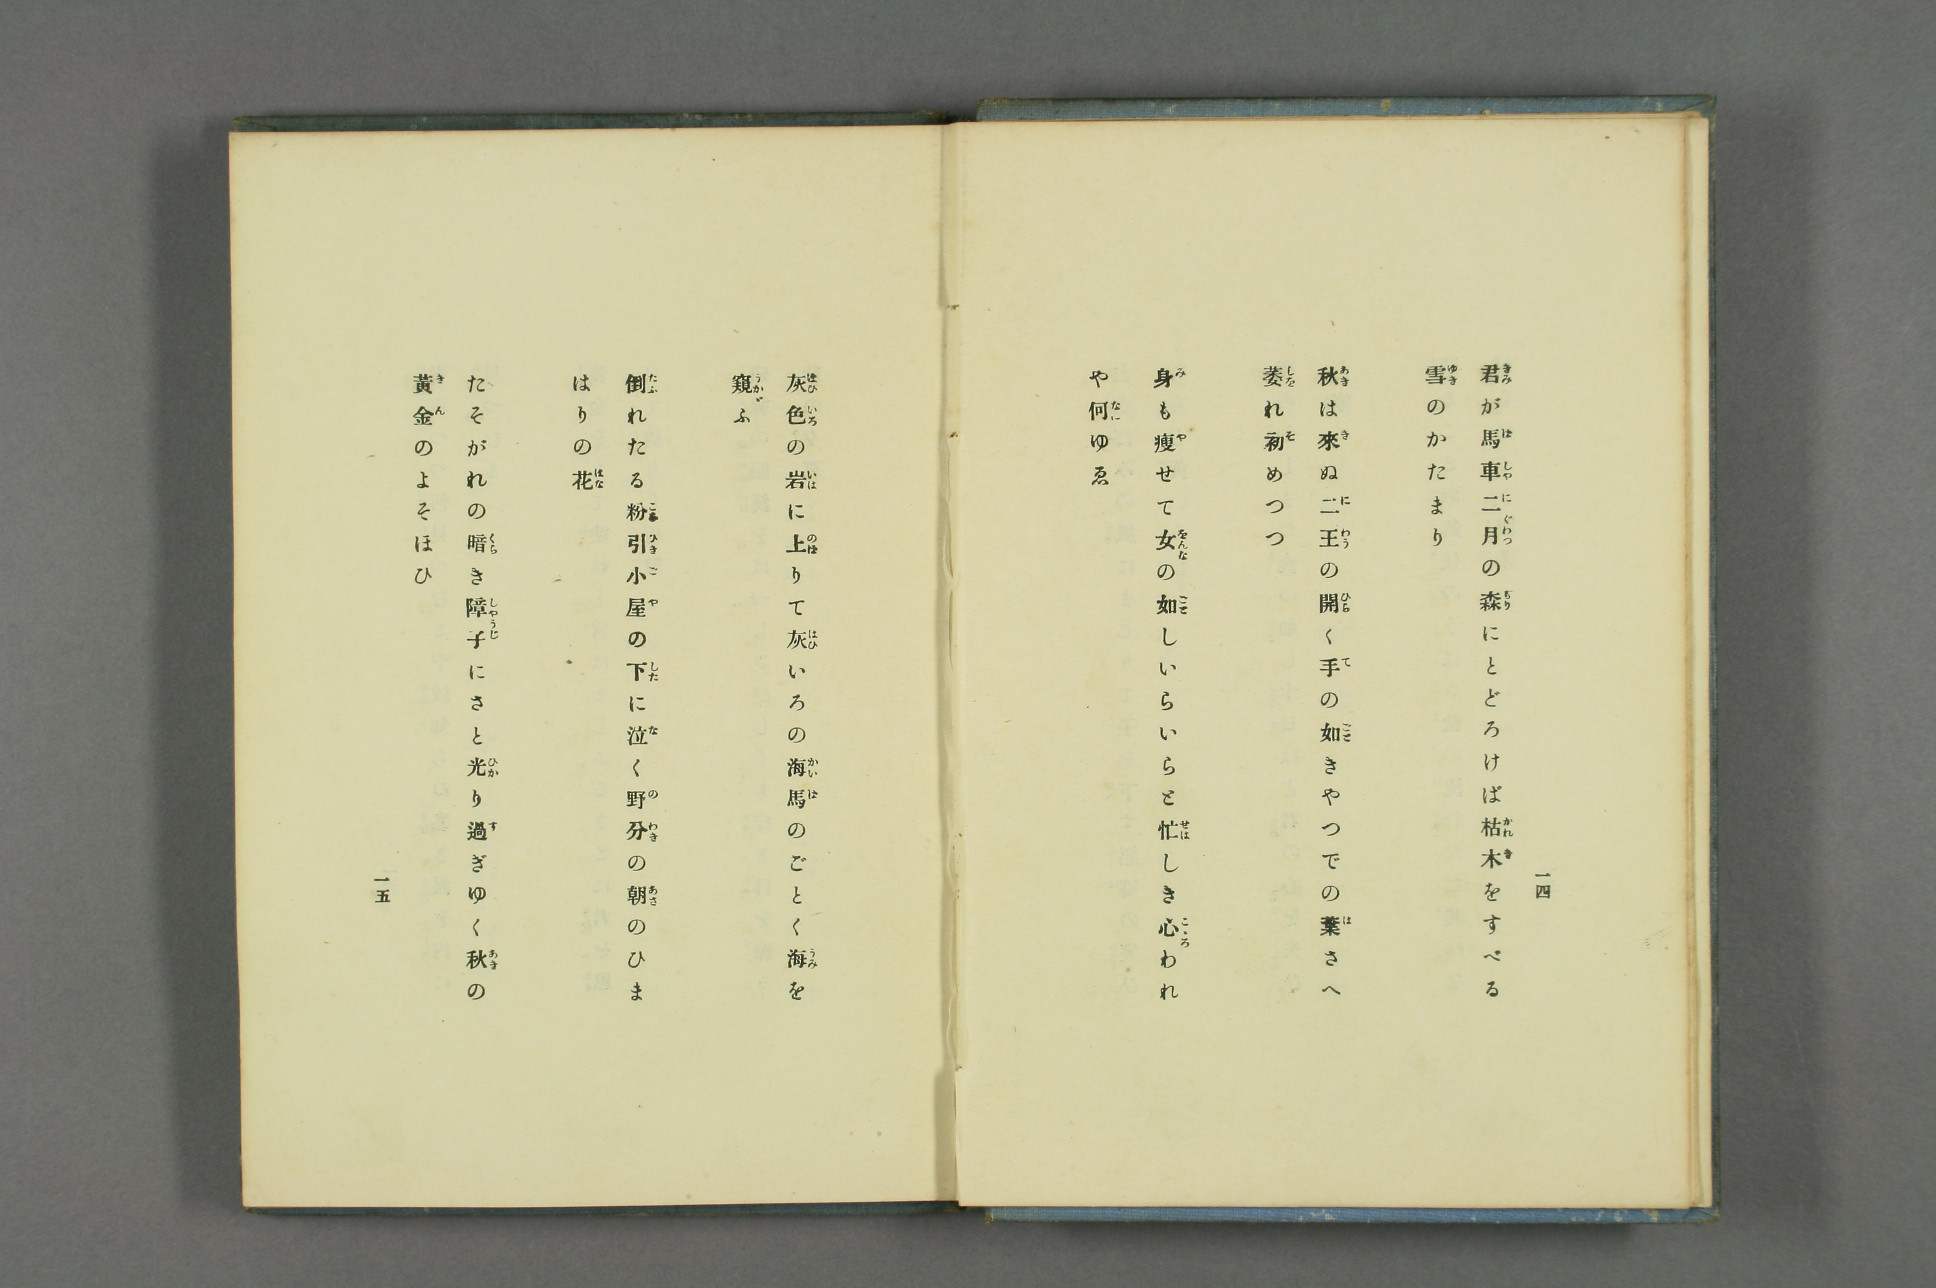 君が馬車二月の森にとどろけば枯木をすべる
雪のかたまり
秋は來ぬ二王の開く手の如きやつでの葉さへ
萎れ初めつつ
身も痩せて女の如しいらいらと忙しき心われ
や何ゆゑ
一四
灰色の岩に上りて灰いろの海馬のごとく海を
窺ふ
倒れたる粉引小屋の下に泣く野分の朝のひま
はりの花
たそがれの暗き障子にさと光り過ぎゆく秋の
黃金のよそほひ
一五